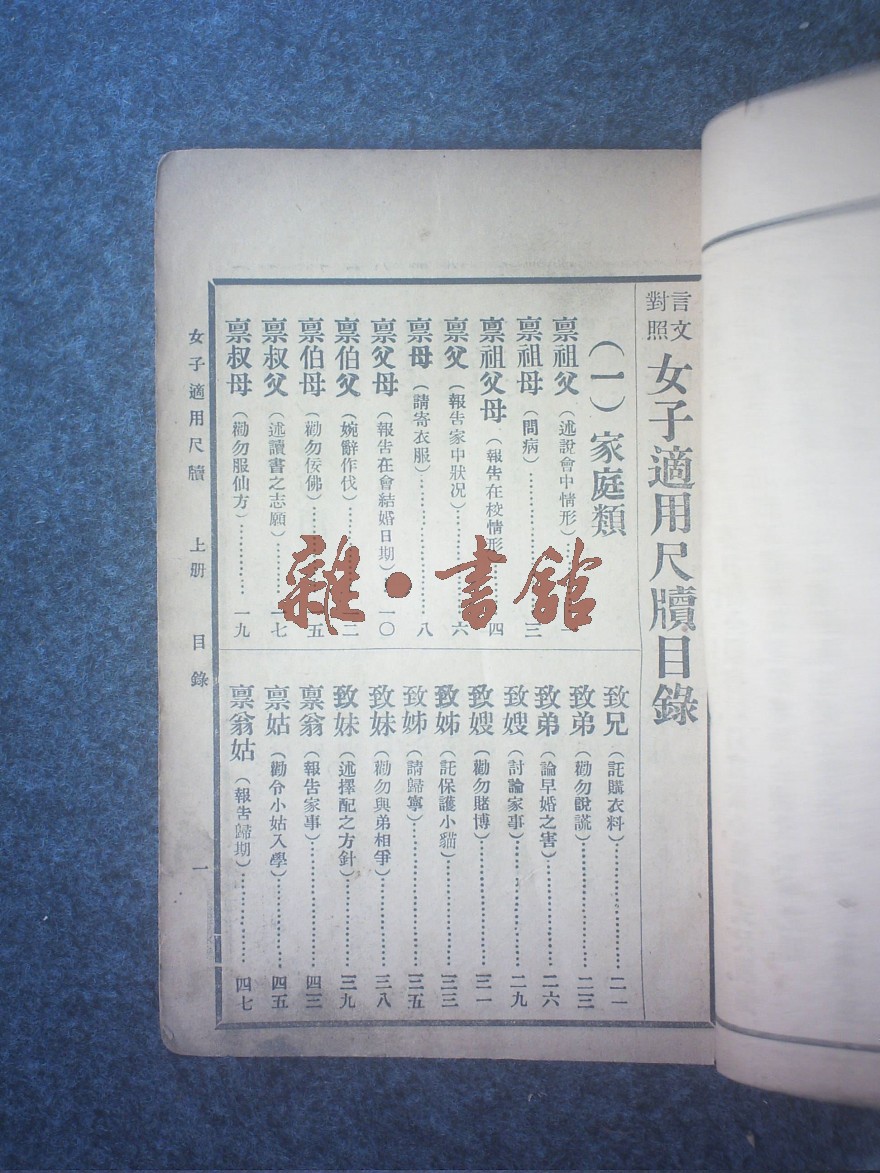 言文對照 女子適用尺牘目錄
(一)家庭類
禀祖父(述說會中情形)
禀祖母(問病)…………三
禀祖父母(報告在校情形)…四
禀父(報告家中狀况)…………六
禀母(請寄衣服)…………八
禀父母(報告在會結婚日期)…一〇
禀伯父(婉辭作伐)…………二
禀伯母(勸勿佞佛)…………五
禀叔父(述讀書之志願)…………七
禀叔母(勸勿服仙方)…………一九
致兄(託購衣料)…………二一
致弟(勸勿說謊)…………二三
致弟(論早婚之害)…………二六
致嫂(討論家事)…………二九
致嫂(勸勿賭博)…………三一
致姊(託保護小貓)…………三三
致姊(請歸寧)…………三五
致妹(勸勿與弟相爭)…………三八
致妹(述擇配之方針)…………三九
禀翁(報告家事)…………四三
禀姑(勸令小姑入學)…………四五
禀翁姑(報告歸期)…………四七
女子適用尺牘 上册 目錄 一
雜·書館